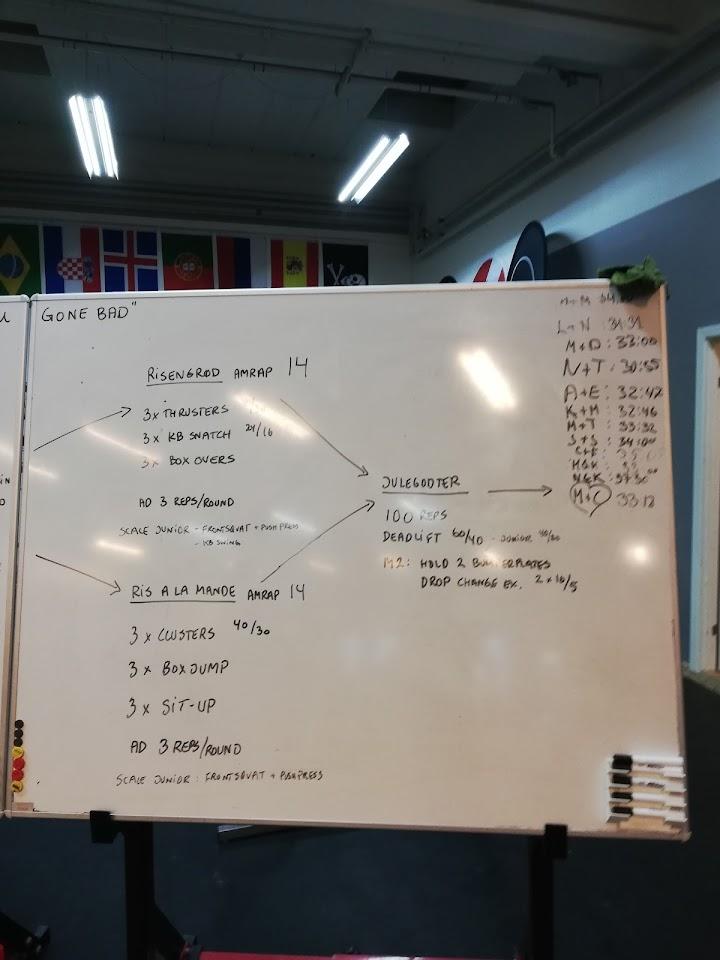 GONE BAD"
RISENGRØD AMRAP 14
3x THRUSTERS
3x KB SNATCH 24/16
3x BOX OVERS
AD 3 REPS/ROUND
SCALE JUNIOR - FRONTSQUAT + PUSHPRESS
- KB SWING
RIS A LA MANDE AMRAP 14
3 x CLUSTERS 40/30
3 x BOXJUMP
3 x SIT-UP
AD 3 REPS/ROUND
SCALE JUNIOR : FRONTSQUAT + PUSHPRESS
JULEGODTER
100 REPS
DEADLIFT 60/40 - JUNIOR 40/30
M2: HOLD 2 BUMPERPLATES
DROP CHANGE EX. 2 x 10/5
L+N : 31:31
M+D : 33:00
N+T : 30:55
A+E : 32:42
K+M : 32:46
M+T : 33:32
S+S : 34:00
M+C 33:12